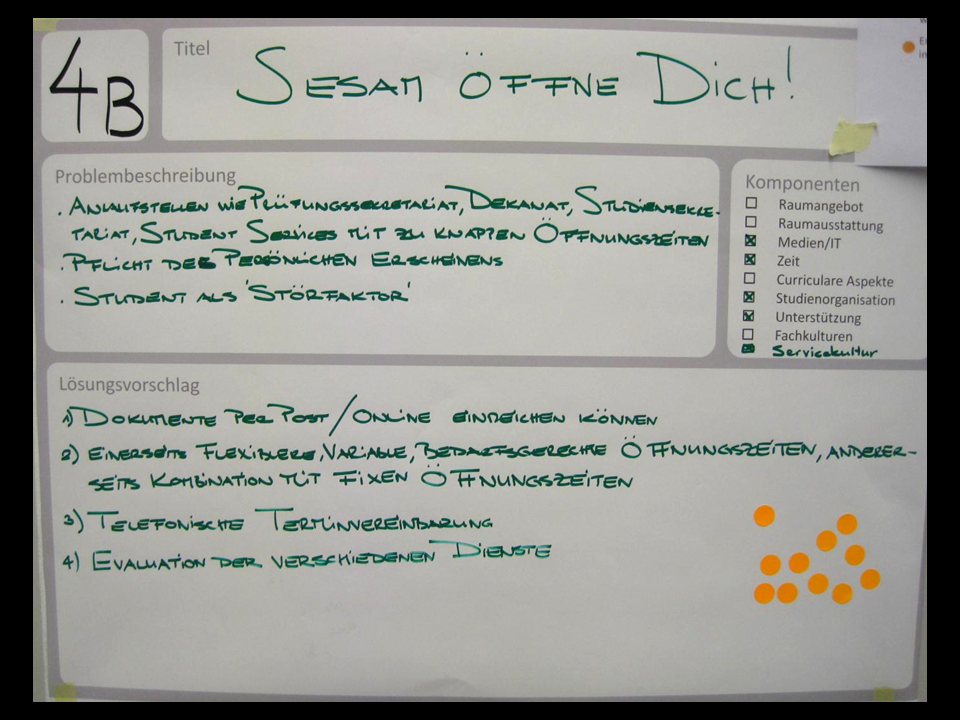 4B
Titel
SESAM ÖFFNE DICH!
Problembeschreibung
. ANLAUFSTELLEN WIE PRÜFUNGSSEKRETARIAT, DEKANAT, STUDIENSEKRE-
TARIAT, STUDENT SERVICES MIT ZU KNAPPEN ÖFFNUNGSZEITEN
. PFLICHT DES PERSÖNLICHEN ERSCHEINENS
. STUDENT ALS 'STÖRFAKTOR'
Komponenten
Raumangebot
Raumausstattung
Medien/IT
Zeit
Curriculare Aspekte
Studienorganisation
Unterstützung
Fachkulturen
Servicekultur
Lösungsvorschlag
1) DOKUMENTE PER POST / ONLINE EINREICHEN KÖNNEN
2) EINERSEITS FLEXIBLERE, VARIABLE, BEDARFSGERECHTE ÖFFNUNGSZEITEN, ANDERER-
SEITS KOMBINATION MIT FIXEN ÖFFNUNGSZEITEN
3) TELEFONISCHE TERMINVEREINBARUNG
4) EVALUATION DER VERSCHIEDENEN DIENSTE